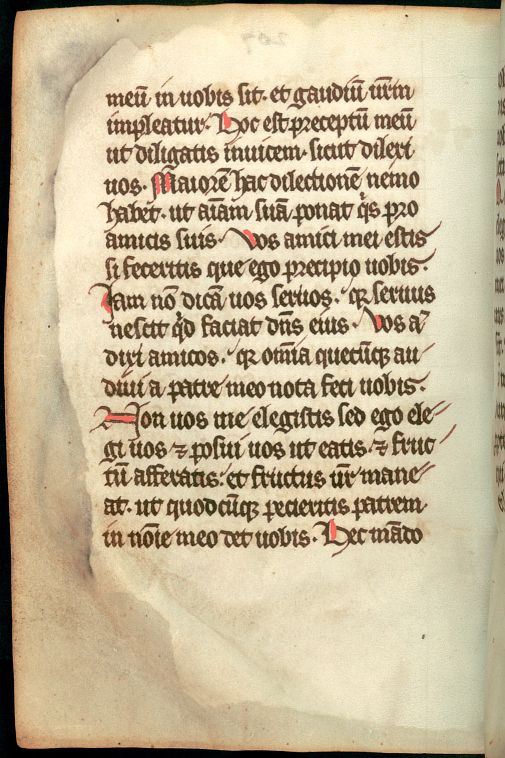 meū in uobis sit. et gaudiū ur̄m
impleatur. Hoc est preceptū meū
ut diligatis inuicem. sicut dilexi
uos. Maiorē hac dilectionē nemo
habet. ut aīam suā ponat q̇s pro
amicis suis. Vos amici mei estis
si feceritis que ego precipio uobis.
Iam nō dicā uos seruos. qꝛ seruus
nescit qd̄ faciat dn̄s eius. Vos aͫ
dixi amicos. qꝛ om̄ia quecūqꝫ au-
diui a patre meo nota feci uobis.
Non uos me elegistis sed ego ele-
gi uos ⁊ posui uos ut eatis. ⁊ fruc-
tū afferatis. et fructus ur̄ mane-
at. ut quodcūqꝫ pecieritis patrem
in noīe meo det uobis. Hec mādo